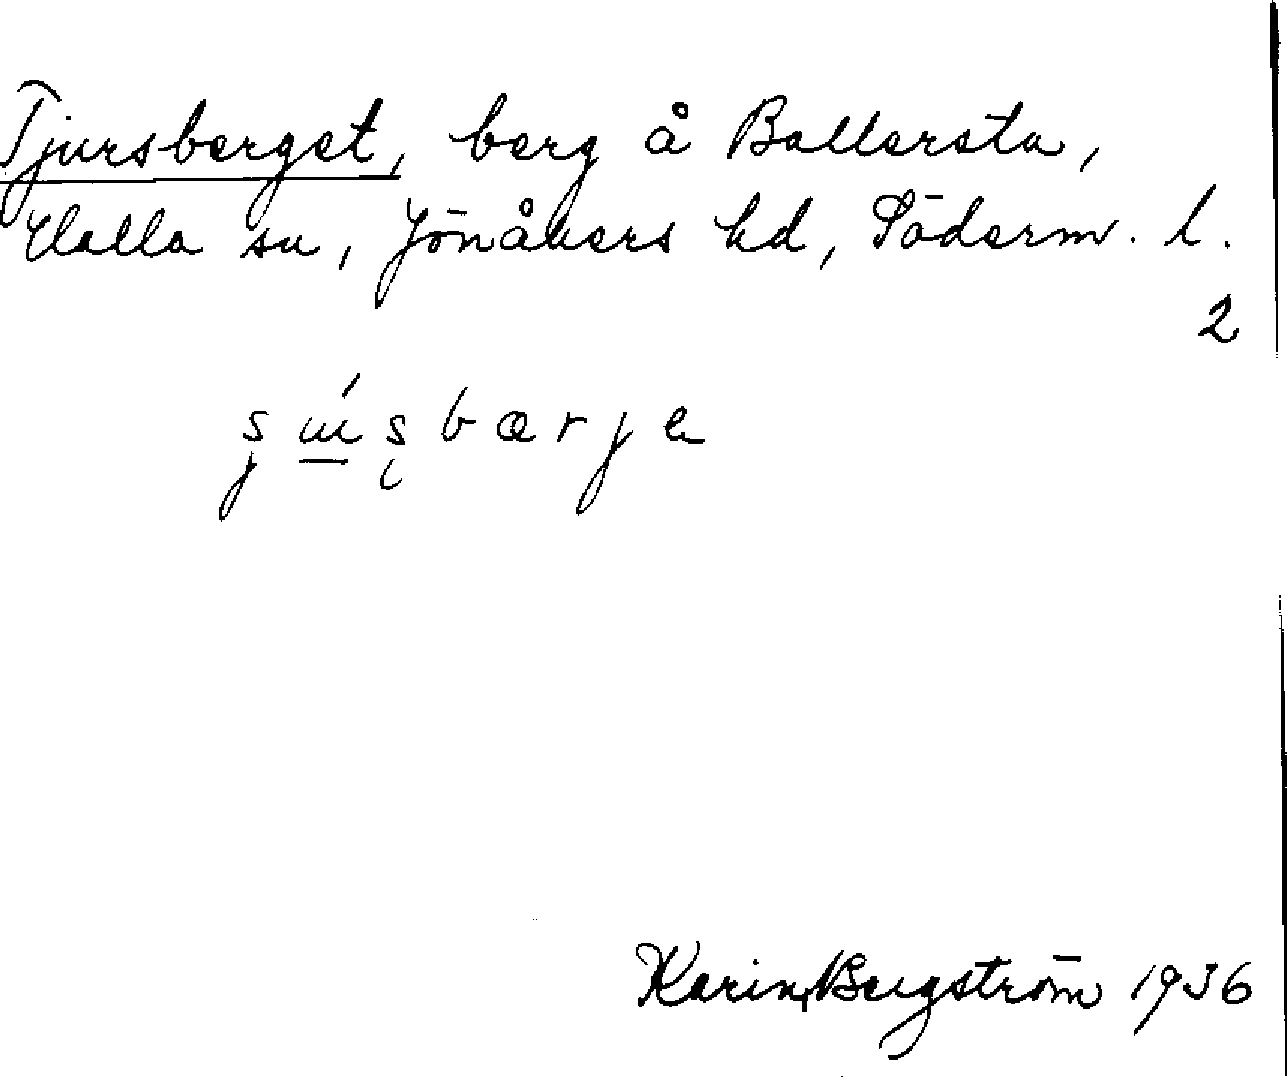 Tjursberget, berg å Ballersta,
Halla sn, Jönåkers hd, Söderm. l.
2
bærje
Karin Bergström 1936